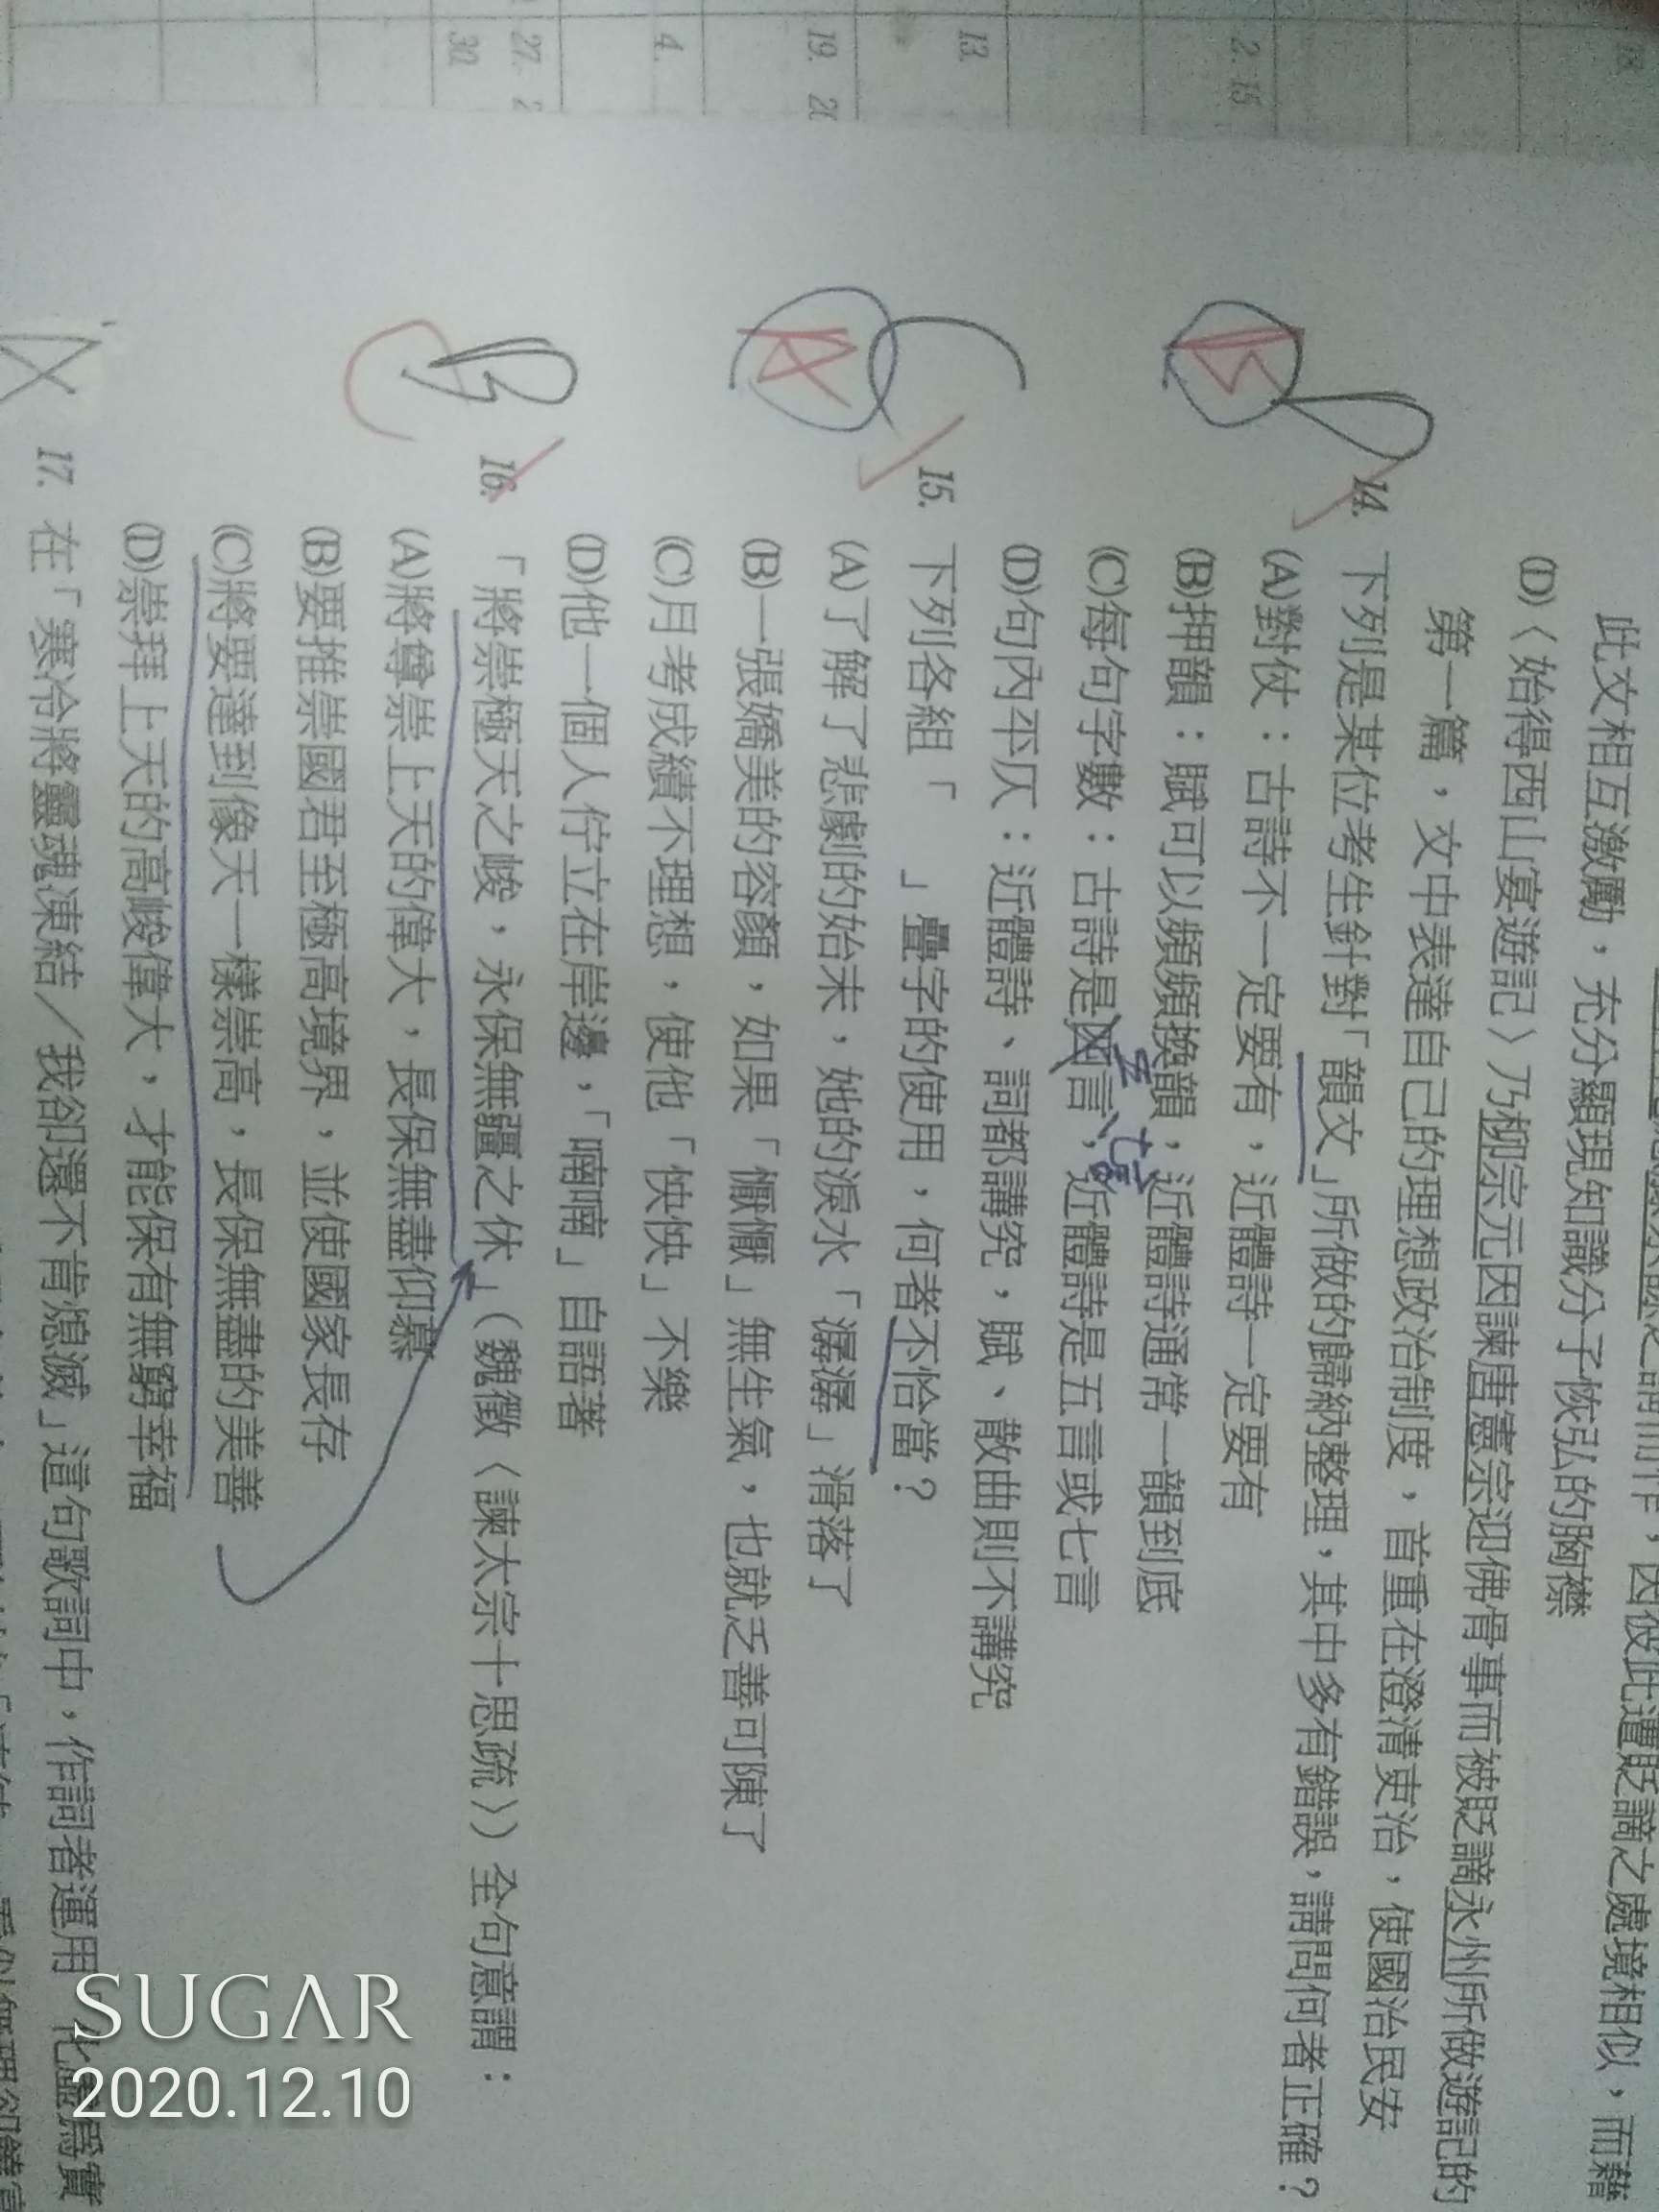 此文相互激勵,充分顯現知識分子恢弘的胸襟
(D)〈始得西山宴遊記〉乃柳宗元因諫唐憲宗迎佛骨事而被貶謫永州所做遊記的
第一篇,文中表達自己的理想政治制度,首重在澄清吏治,使國治民安
B
14. 下列是某位考生針對「韻文」所做的歸納整理,其中多有錯誤,請問何者正確?
(A)對仗:古詩不一定要有,近體詩一定要有
(B)押韻:賦可以頻頻換韻,近體詩通常一韻到底
五 七言
(C)每句字數:古詩是四言,近體詩是五言或七言
(D)句內平仄:近體詩、詞都講究,賦、散曲則不講究
C A
15. 下列各組「 」疊字的使用,何者不恰當?
(A)了解了悲劇的始末,她的淚水「潺潺」滑落了
(B)一張嬌美的容顏,如果「懨懨」無生氣,也就乏善可陳了
(C)月考成績不理想,使他「怏怏」不樂
(D)他一個人佇立在岸邊,「喃喃」自語著
B C
16. 「將崇極天之峻,永保無疆之休」(魏徵〈諫太宗十思疏〉)全句意謂:
(A)將尊崇上天的偉大,長保無盡仰慕
(B)要推崇國君至極高境界,並使國家長存
(C)將要達到像天一樣崇高,長保無盡的美善
(D)崇拜上天的高峻偉大,才能保有無窮幸福
17. 在「寒冷將靈魂凍結/我卻還不肯熄滅」這句歌詞中,作詞者運用「化虛為實
13.
19. 20
4.
27.
30.
2. 15
SUGAR
2020.12.10